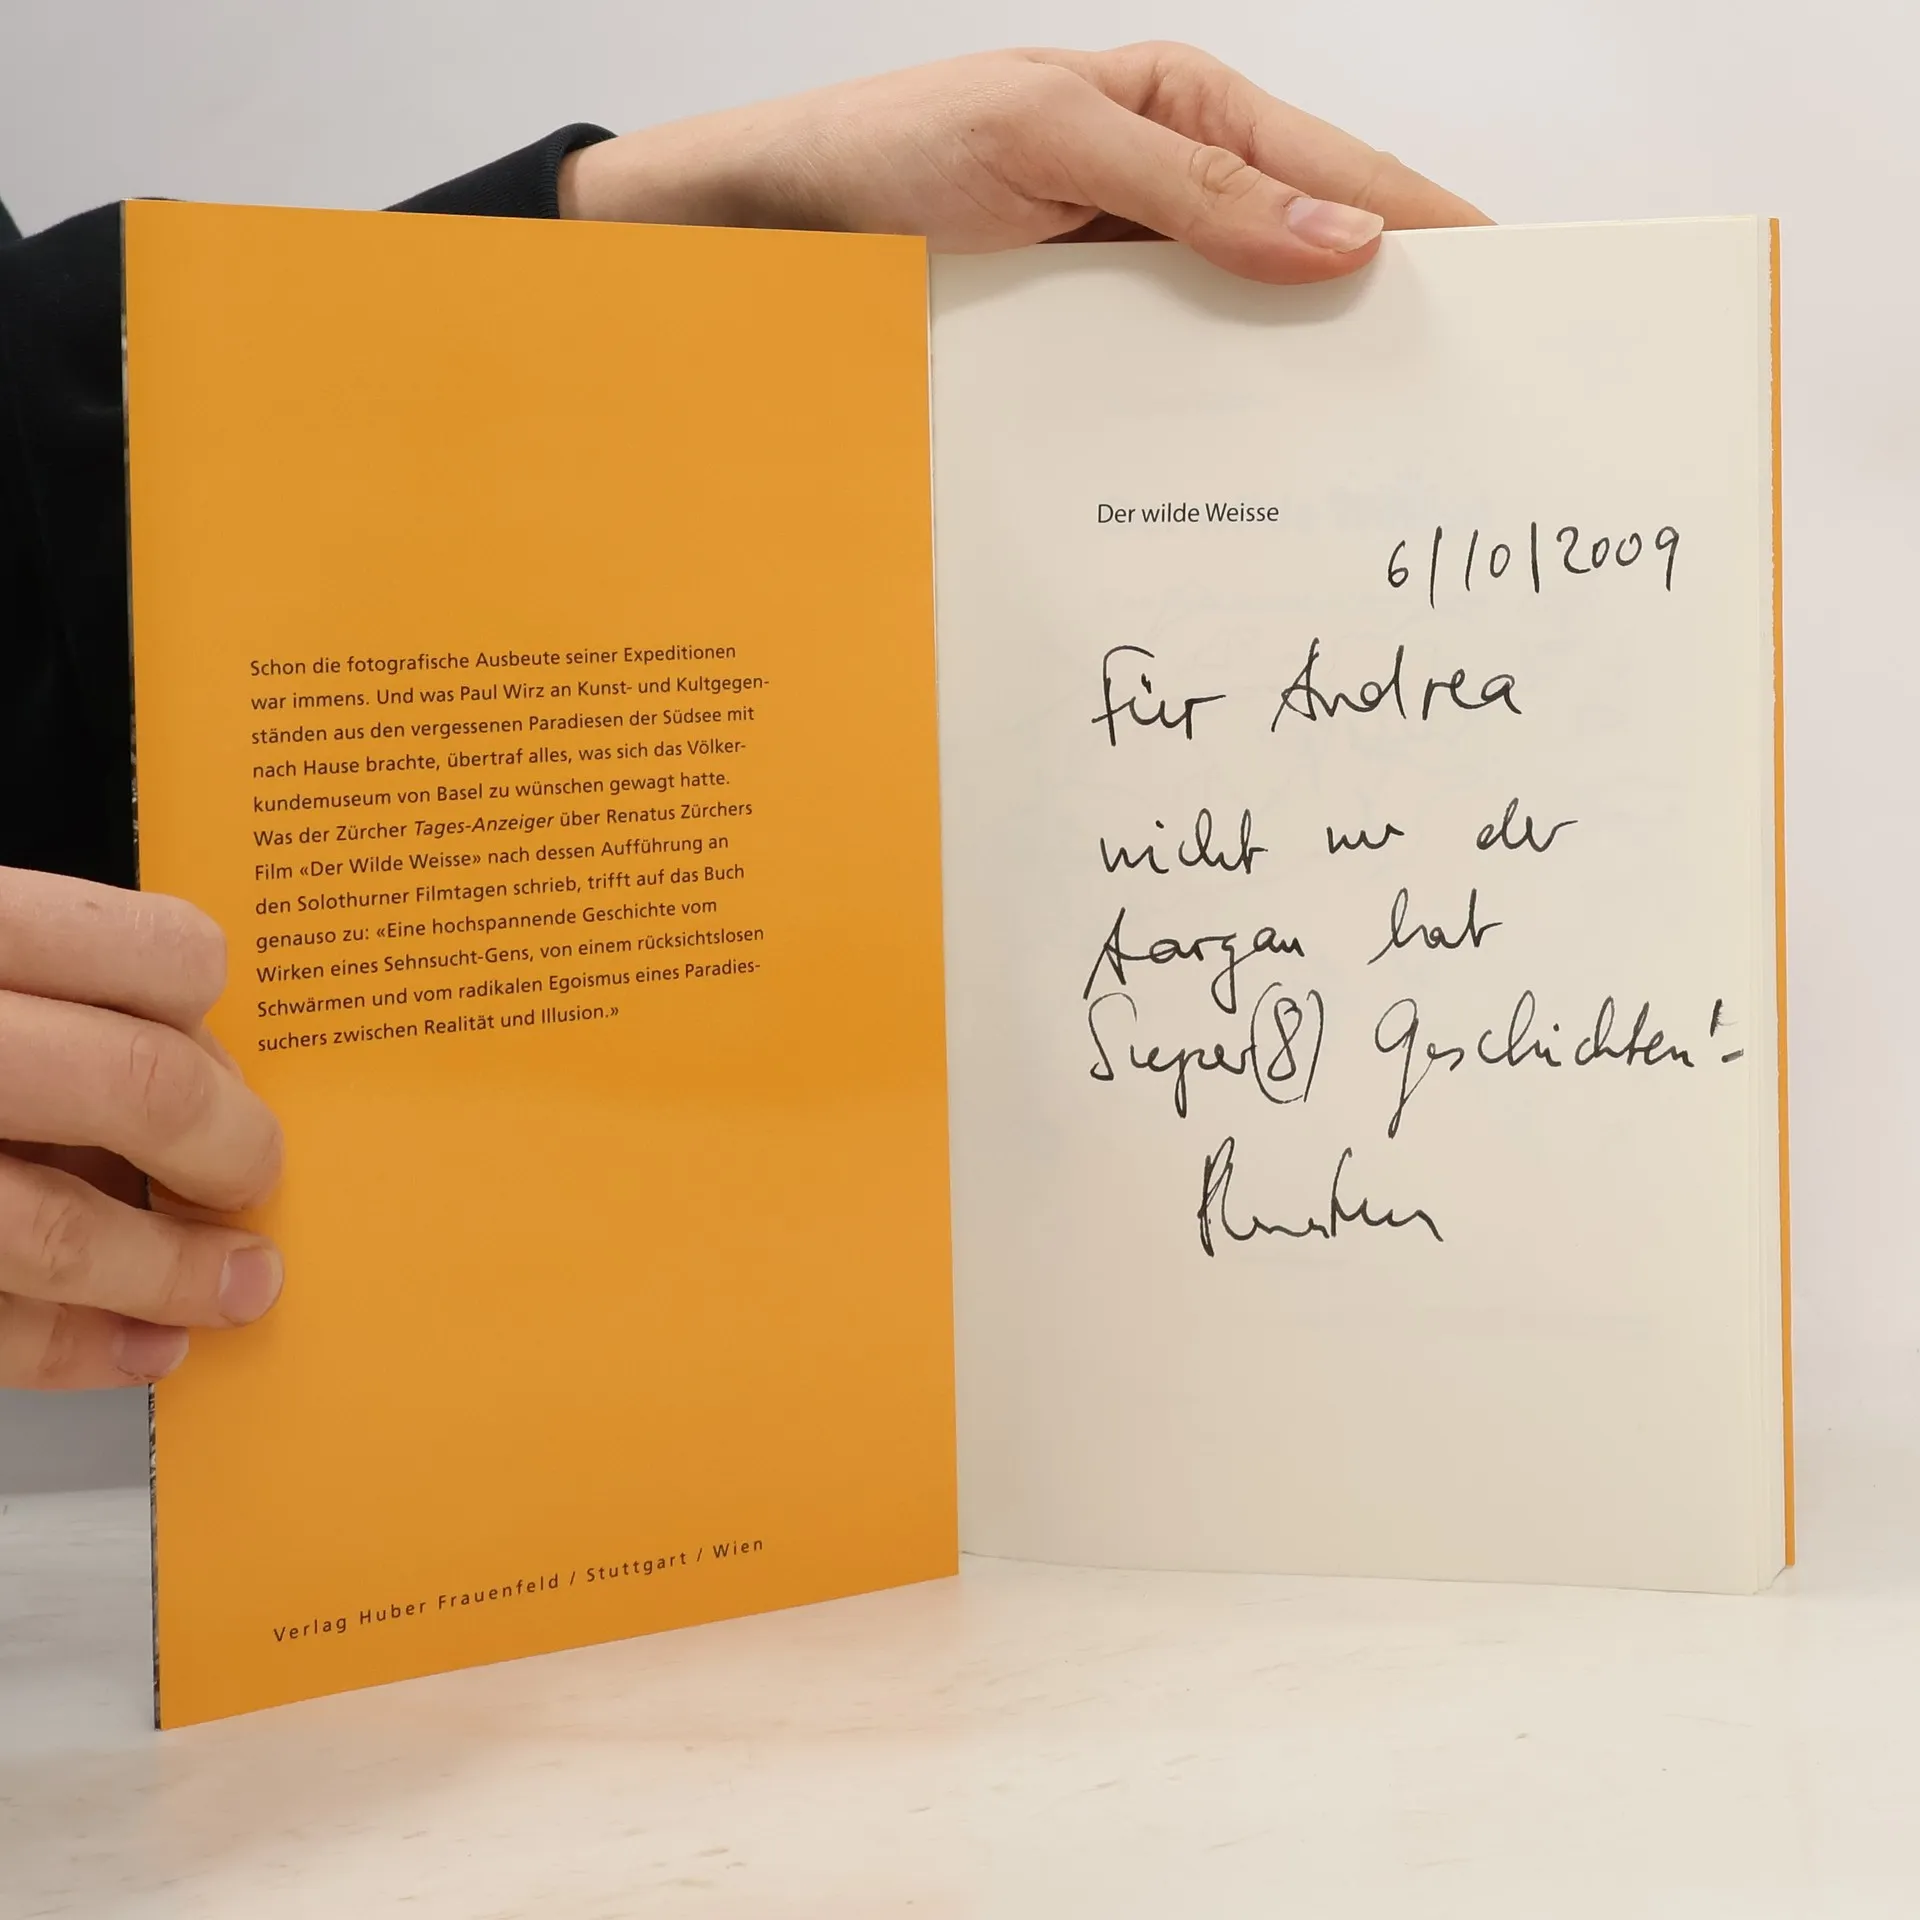 Schon die fotografische Ausbeute seiner Expeditionen
war immens. Und was Paul Wirz an Kunst- und Kultgegen-
ständen aus den vergessenen Paradiesen der Südsee mit
nach Hause brachte, übertraf alles, was sich das Völker-
kundemuseum von Basel zu wünschen gewagt hatte.
Was der Zürcher Tages-Anzeiger über Renatus Zürchers
Film «Der Wilde Weisse» nach dessen Aufführung an
den Solothurner Filmtagen schrieb, trifft auf das Buch
genauso zu: «Eine hochspannende Geschichte vom
Wirken eines Sehnsucht-Gens, von einem rücksichtslosen
Schwärmen und vom radikalen Egoismus eines Paradies-
suchers zwischen Realität und Illusion.»
Verlag Huber Frauenfeld / Stuttgart / Wien
Der wilde Weisse
6/10/2009
Für Andrea
nicht nur der
Aargau hat
Super(8) Geschichten!
Renatus